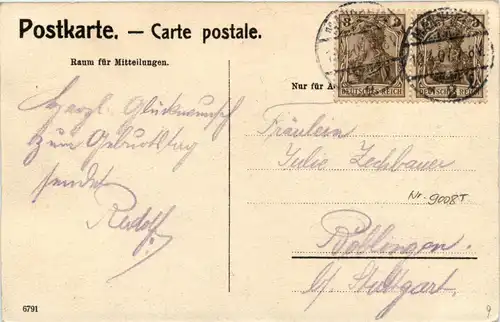 Postkarte. — Carte postale.
Raum für Mitteilungen.
Nur für
3 3
DEUTSCHES REICH DEUTSCHES REICH
Herzl. Glückwunsch
zum Geburtstag
sendet
Rudolf.
Fräulein
Julie Zechbauer
Nr. 9008T
b/ Stuttgart.
6791
9